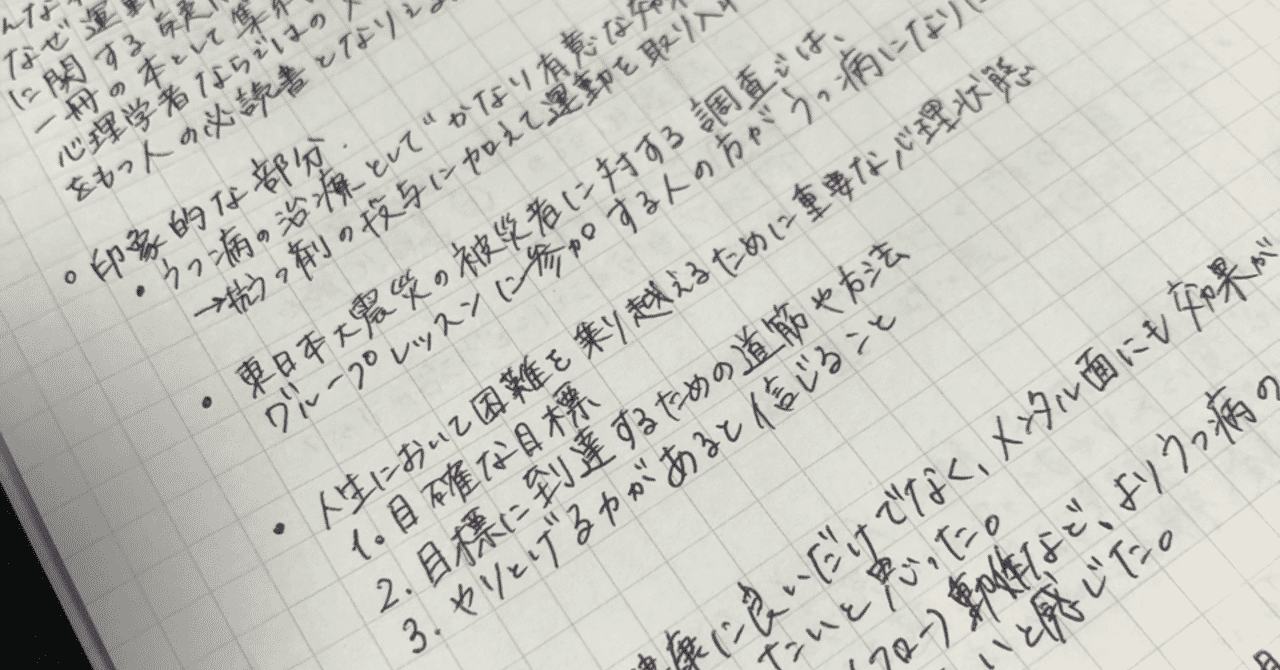 なぜ運動
に関する
一冊の本として集
心理学者ならではの
をもつ人の必読書となりえる
○ 印象的な部分.
・うつ病の治療として"かなり有意な効果
→抗うつ剤の投与に加えて運動を取り入れ
・東日本大震災の被災者に対する調査では、
グループレッスンに参加する人の方がうつ病になりに
・人生において困難を乗り越えるために重要な心理状態
1. 目確な目標
2. 目標に到達するための道筋や方法
3. やりとげる力があると信じること
健康に良いだけでなく、メンタル面にも効果が
たいと思った。
(フロー)動作など、よりうつ病の
いと感じた。